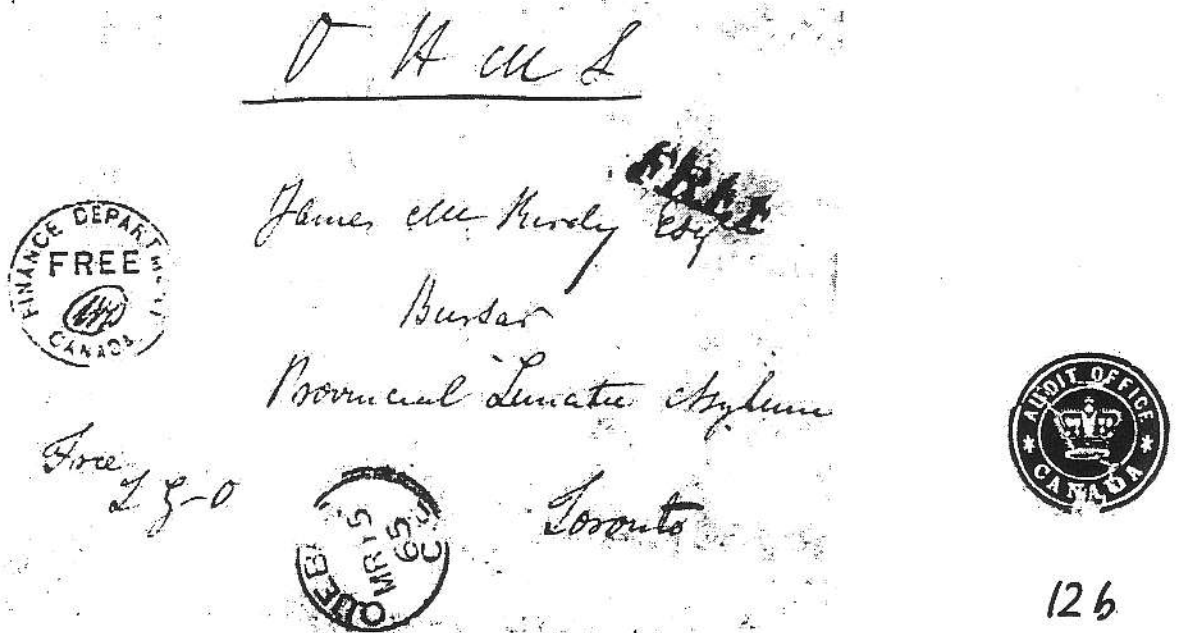 O H M S
FREE
James Mc Kirdy Esq
Bursar
Provincial Lunatic Asylum
Toronto
FINANCE DEPARTMENT
FREE
CANADA
Free
QUEBEC
MR 15
65
AUDIT OFFICE
CANADA
126